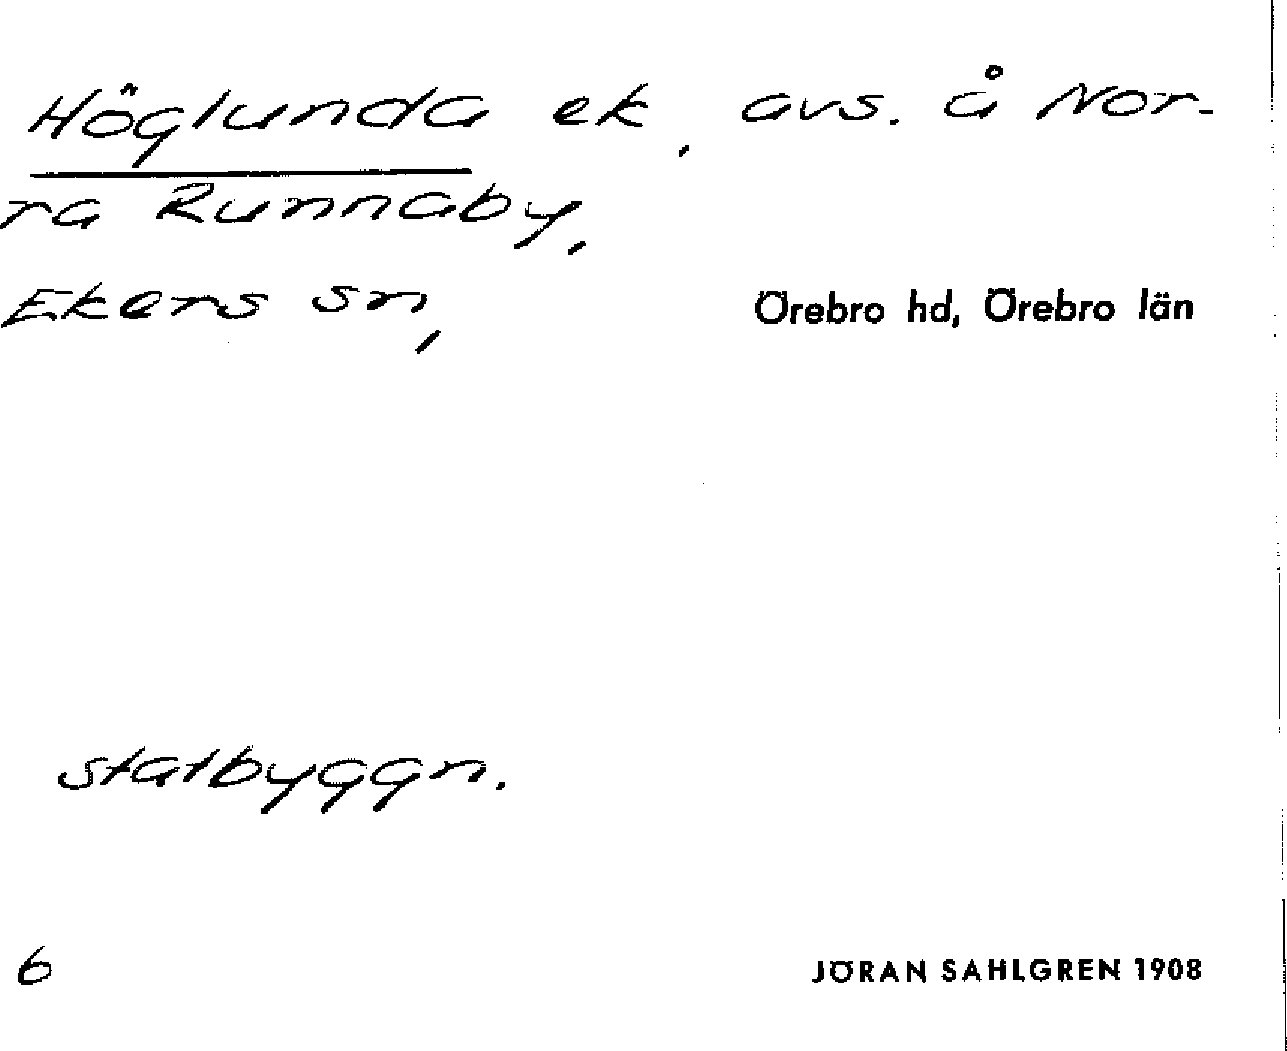 Höglunda ek, avs. å Nor-
ra Runnaby,
Ekers sn, Örebro hd, Örebro län
statbyggn.
6 JÖRAN SAHLGREN 1908